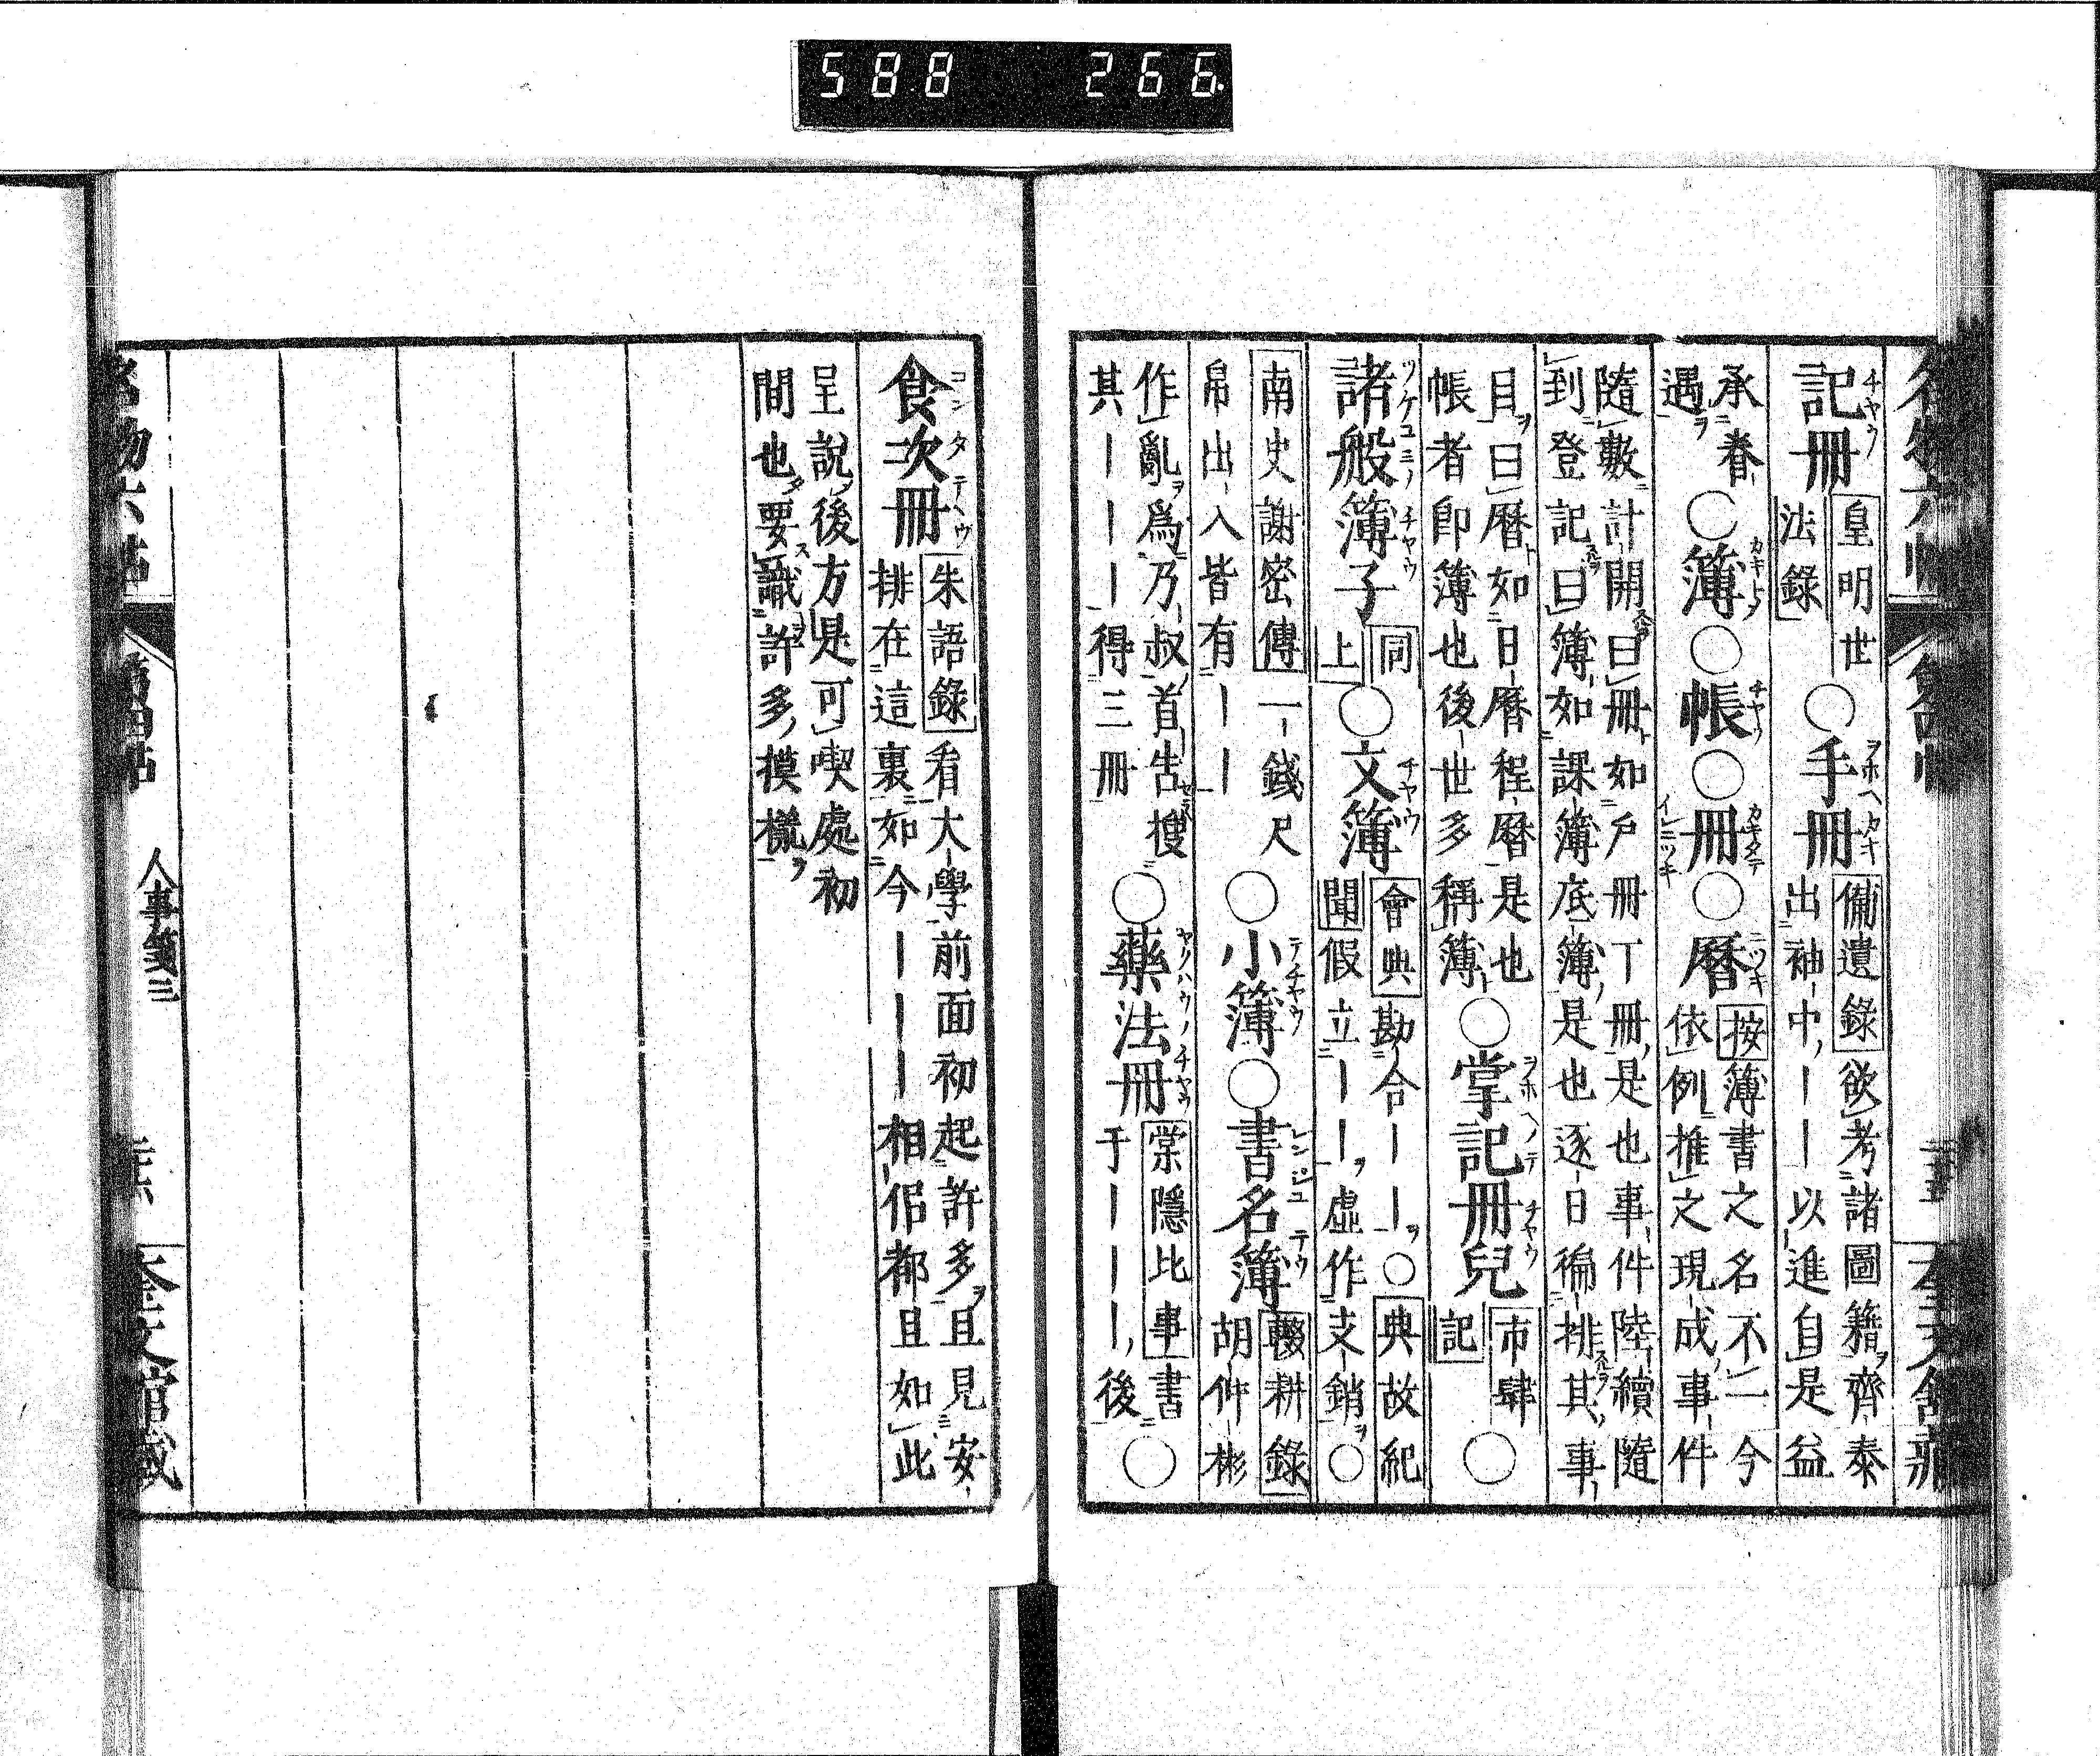 588 266
記冊 皇明世法錄 ○手冊 備遺錄 欲考諸圖籍齊泰出袖中｜｜以進自是益
承眷遇 ○簿○帳○冊○曆 按簿書之名不一今依例推之現成事件
隨數計開曰冊如戶冊丁冊是也事件陸續隨到登記曰簿如課簿底簿是也逐日徧排其事
目曰曆如日曆程曆是也帳者即簿也後世多稱簿 ○掌記冊兒 市肆記 ○
諸般簿子 同上 ○文簿 會典 勘合｜｜○典故紀聞 假立｜｜虛作支銷○
南史謝密傳 一錢尺帛出入皆有｜｜ ○小簿○書名簿 輟耕錄 胡仲彬
作亂為乃叔首告搜其｜｜｜得三冊 ○藥法冊 棠隱比事 書于｜｜｜後 ○
食次冊 朱語錄 看大學前面初起許多且見安排在這裏如今｜｜｜相似都且如此
呈說後方是可喫處初間也要識許多摸樣
人事箋三